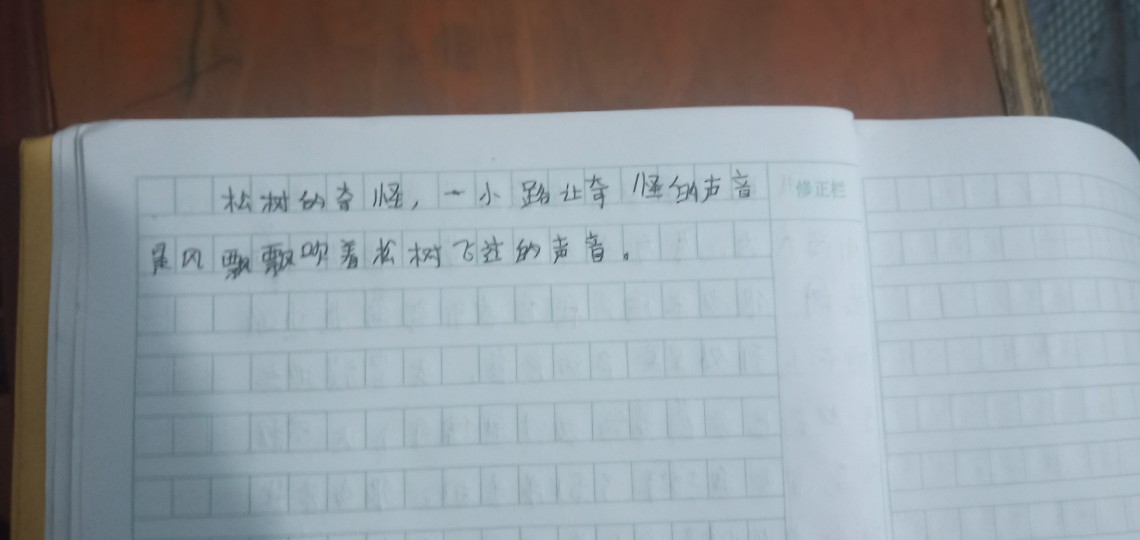 松树的奇怪，一小路让奇怪的声音
是风飘飘吹着松树飞过的声音。
修正栏